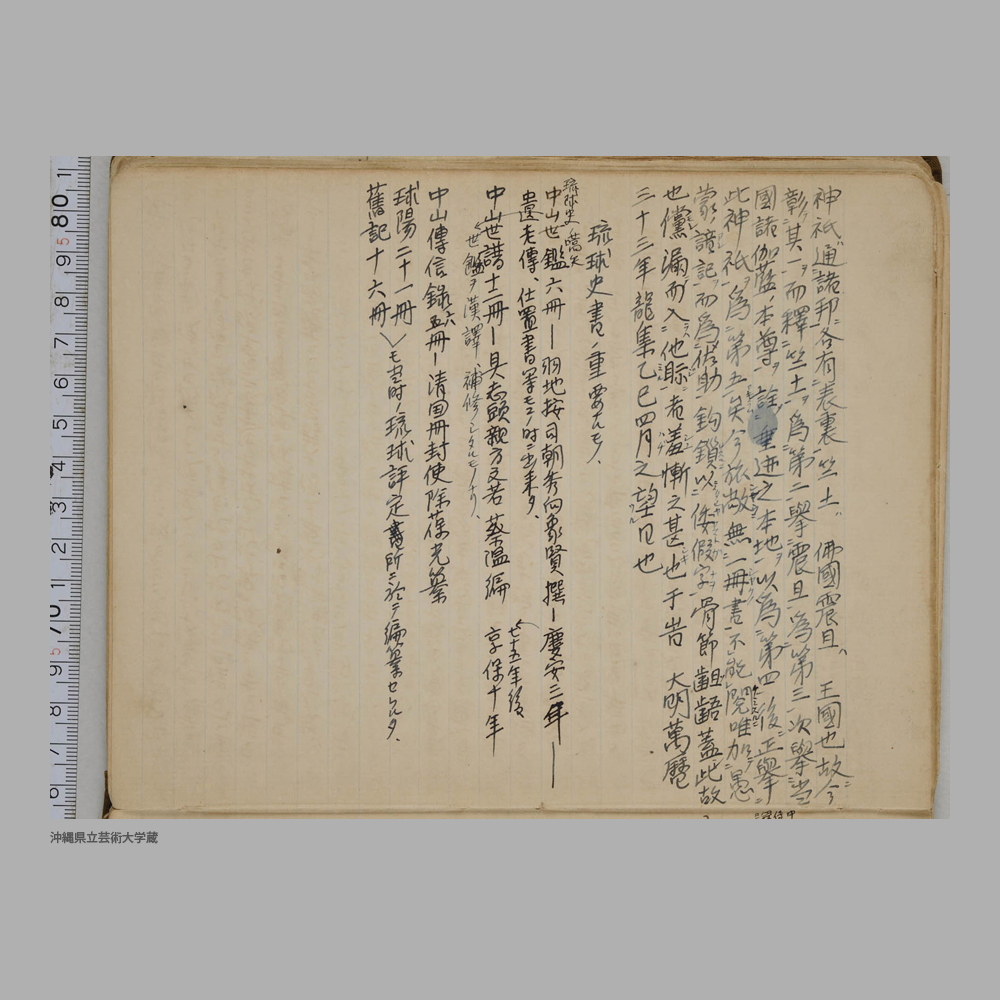 神祇通諸邦各有表裏竺土佛國震旦王國也故今
彰其一而釋竺土ヲ爲第二擧震旦爲第三次擧当
國諸伽藍ノ本尊詮垂迹之本地以爲第四後正擧
此神祇ヲ爲第五矣今於敝無一冊書不能閲唯加愚
蒙讀記而爲佐助鈎鎖以倭假字骨節齟齬蓋此故
也儻漏而入他眎者羞慚之甚也于旹大明萬曆
三十三年龍集乙巳四月之望日也
琉球史書ノ重要ナルモノ
琉球史ノ嚆矢
中山世鑑六冊ー羽地按司朝秀向象賢撰ー慶安三年ー
遺老傳、仕置書等モコノ時ニ出来タ、
七十五年後
中山世譜十二冊ー具志頭親方文若蔡温編 享保十年
世鑑ヲ漢譯、補修シタルモノナリ、
中山傳信錄六冊ー清国冊封使徐葆光纂
球陽二十一冊
舊記十六冊
モ当時ノ琉球評定所ニ於テ編纂セラレタ、
80
70
沖縄県立芸術大学蔵